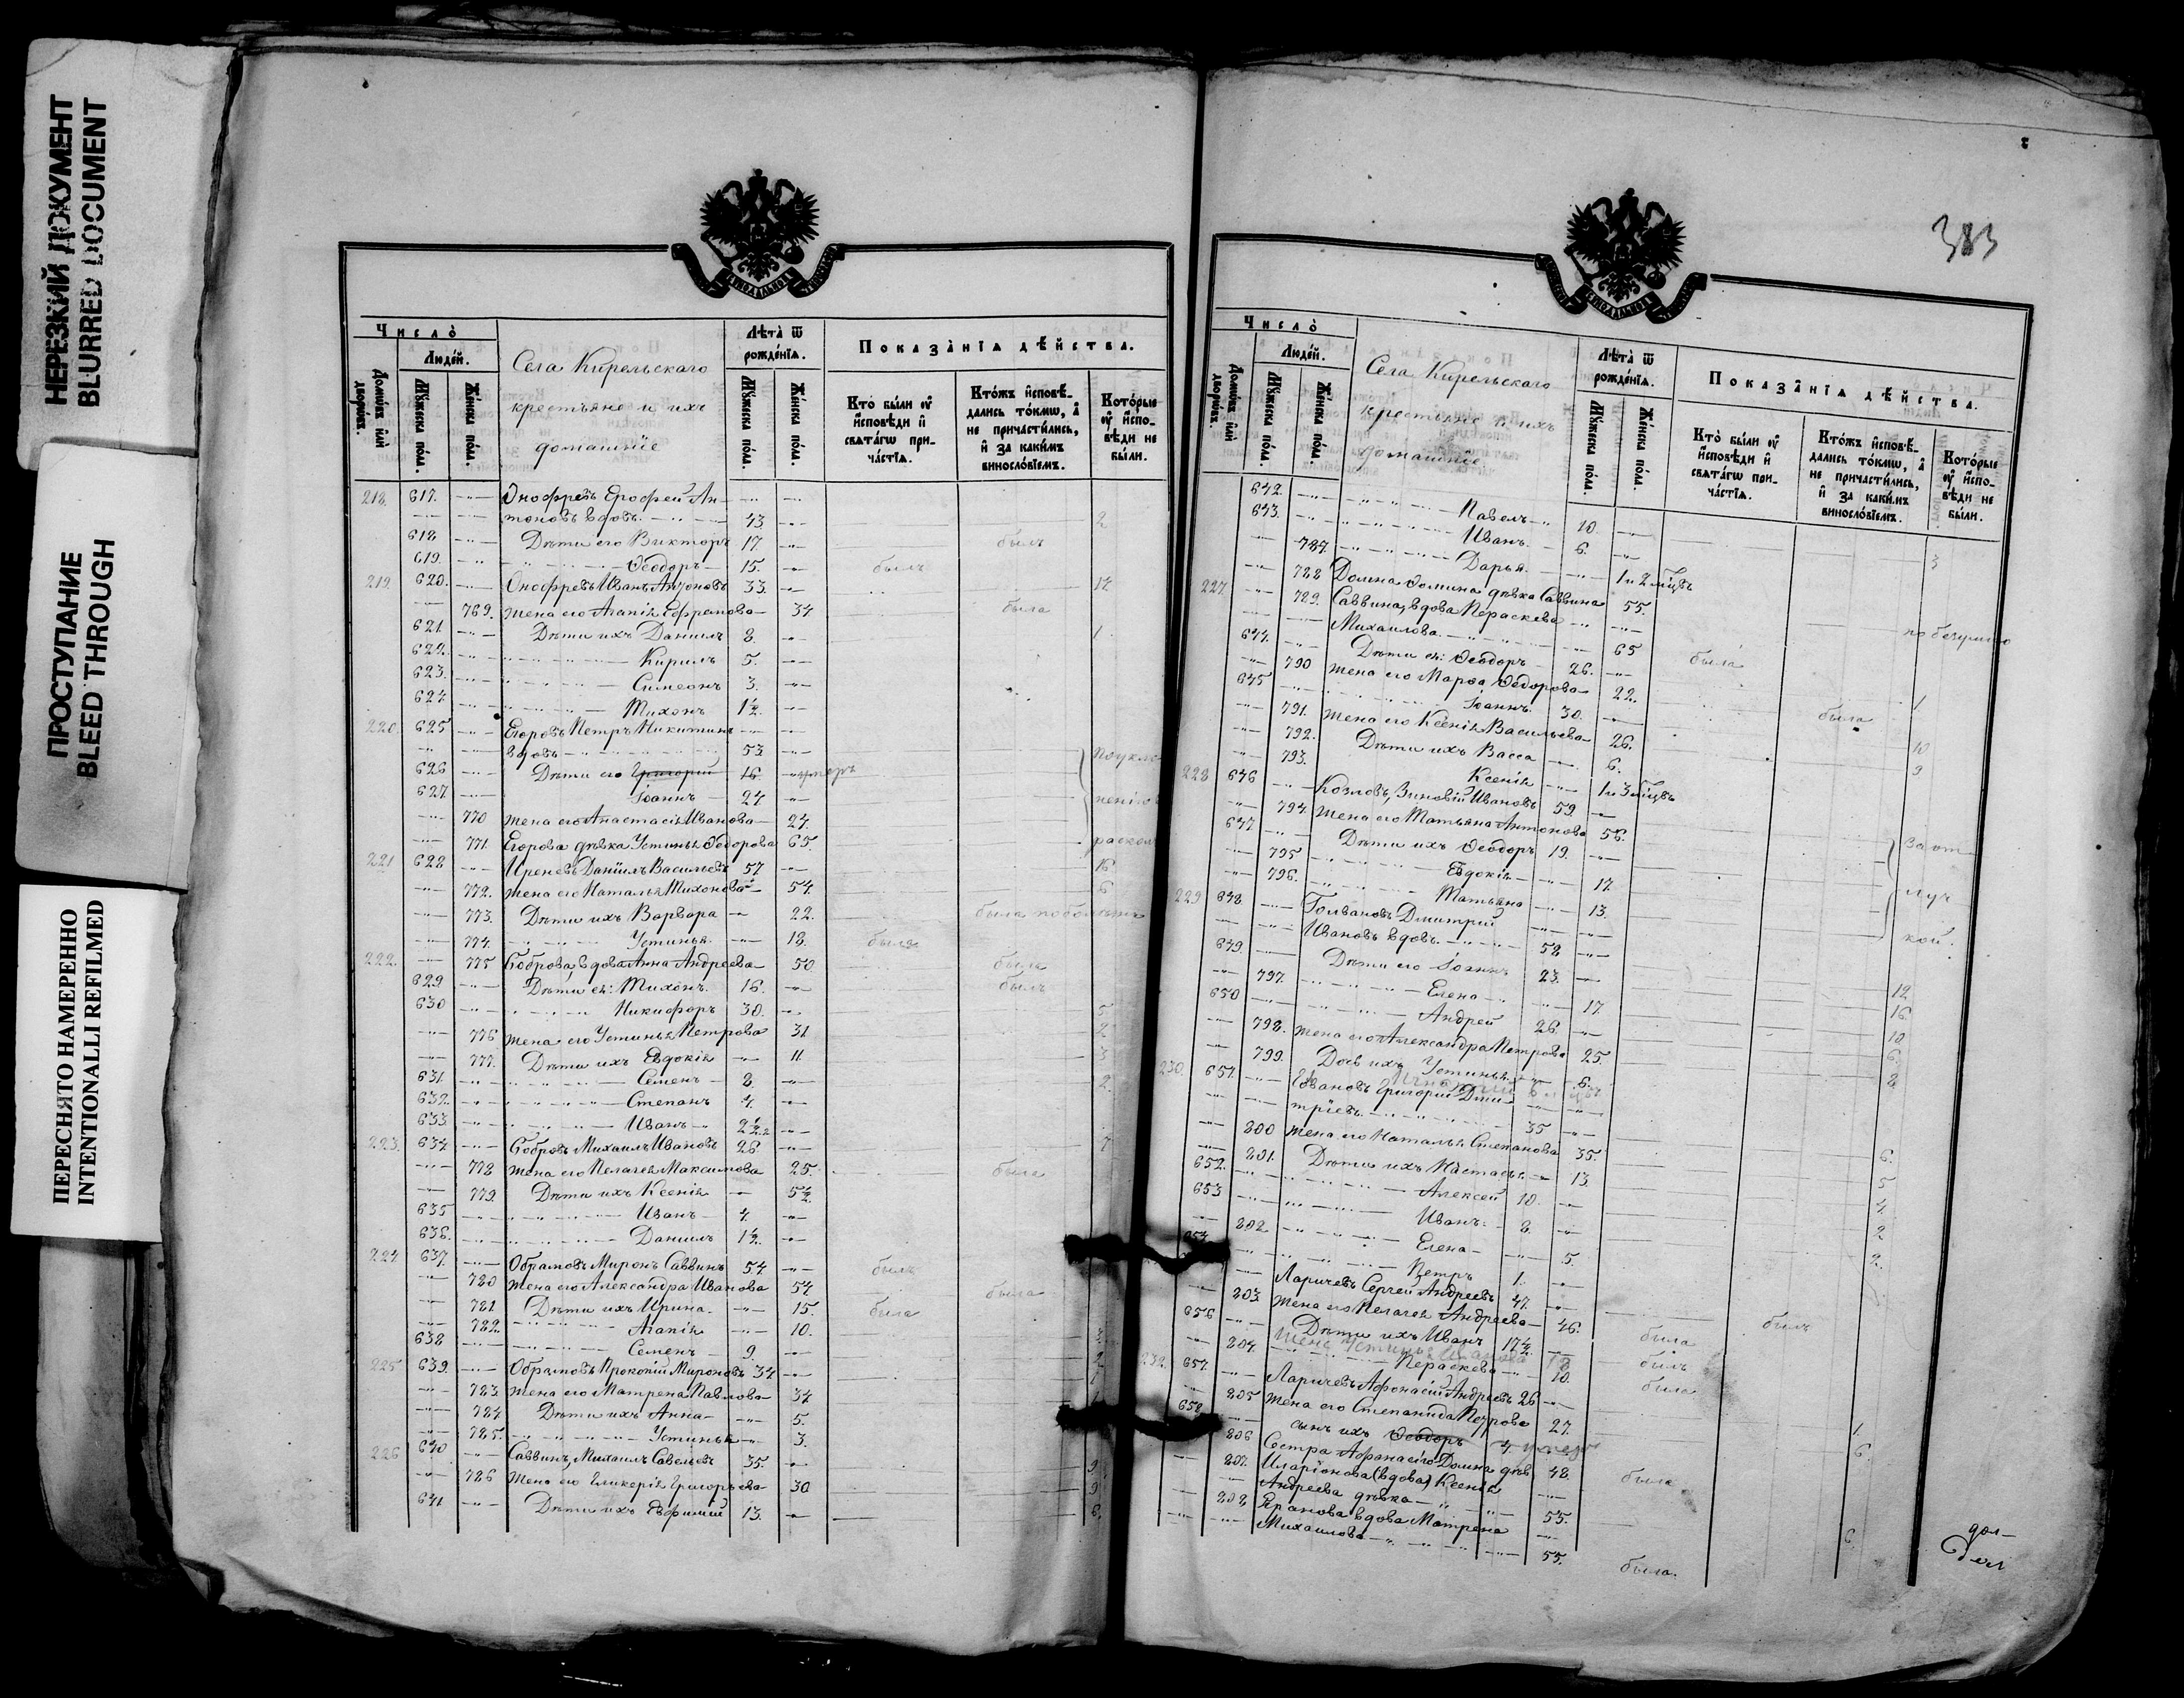 НЕРЕЗКИЙ ДОКУМЕНТ
BLURRED DOCUMENT
ПРОСТУПАНИЕ
BLEED THROUGH
ПЕРЕСНЯТО НАМЕРЕННО
INTENTIONALLI REFILMED
Число̀
Людéй.
Домѡ́въ или́ дворѡ́въ.
Мꙋ́жеска по́ла.
Же́нска по́ла.
Села Кирельскаго
крестьяне и ихъ
домашніе
Лѣта̀ ѿ рожде́нїѧ.
Мꙋ́жеска по́ла.
Же́нска по́ла.
Показа́нїѧ дѣ́йства.
Кто̀ бы́ли ᲂу҆ и҆сповѣ́ди и҆ свѧта́гѡ прича́стїѧ.
Кто́жъ и҆сповѣ́дались то́кмѡ, а҆ не причасти́лись, и҆ за каки́мъ винослóвїемъ.
Кото́рые ᲂу҆ и҆сповѣ́ди не бы́ли.
218. 617. Онофревъ Ерофей Ан-
тоновъ вдовъ. 43 2
618 Дѣти его Викторъ 17. былъ
619. Ѳеодоръ 15. былъ
219. 620. Онофревъ Иванъ Антоновъ 33. 12
769. Жена его Агапія Ефрамова 34 была
621. Дѣти ихъ Даниилъ 8. 1
622. Кирилъ 5.
623. Симеонъ 3.
624 Тихонъ 1½.
220. 625 Егоровъ Петръ Никитинъ
вдовъ 53
626 Дѣти его Григорій 16. умеръ
627. Іоаннъ 24
770 Жена его Анастасія Иванова 24.
771. Егорова дѣвка Устинья Ѳедорова 65.
221 628 Иреневъ Даніилъ Васильевъ 57 16
772. Жена его Наталья Тихонова 54. 6
773. Дѣти ихъ Варвара 22. была
774. Устинья 18. была
222. 775 Бобровa, вдова Анна Андреева 50 была
629 Дѣти ея: Тихонъ. 16. былъ
630 Никифоръ 30. 5
776 Жена его Устинья Петрова 31 2
777. Дѣти ихъ Евдокія 11 3
631. Семенъ 8. 2.
632. Степанъ 4.
633 Иванъ 2½
223. 634 Бобровъ Михаилъ Ивановъ 26 7
778 Жена его Пелагея Максимова 25. была
779. Дѣти ихъ Ксенія 5½.
635 Иванъ 4.
636. Даниилъ 1½.
224 637. Обрамовъ Миронъ Саввинъ 54. былъ
780 Жена его Александра Иванова 54 была
781 Дѣти ихъ Ирина. 15. была
782. Агапія 10.
638 Семенъ 9.
225. 639. Обрамовъ Прокопій Мироновъ 34
783. Жена его Матрена Павлова 34
784 Дѣти ихъ Анна 5.
785. Устинья 3.
226 640 Саввинъ, Михаилъ Савельевъ 35. 9
786 Жена его Гликерія Григорьева 30 9
641 Дѣти ихъ Евфимій 13. 6.
383
Число̀
Людéй.
Домѡ́въ или́ дворѡ́въ.
Мꙋ́жеска по́ла.
Же́нска по́ла.
Села Кирельскаго
крестьяне и ихъ
домашніе.
Лѣта̀ ѿ рожде́нїѧ.
Мꙋ́жеска по́ла.
Же́нска по́ла.
Показа́нїѧ дѣ́йства.
Кто̀ бы́ли ᲂу҆ и҆сповѣ́ди и҆ свѧта́гѡ прича́стїѧ.
Кто́жъ и҆сповѣ́дались то́кмѡ, а҆ не причасти́лись, и҆ за каки́мъ винослóвїемъ.
Кото́рые ᲂу҆ и҆сповѣ́ди не бы́ли.
642. Павелъ 10. 3
643. Иванъ 6.
787. Дарья 1 и 2 м҃цъ
227. 788 Домна дѣвка Саввина 55. по безумію
789. Саввина, вдова Пераскева
Михаилова. 65 была
644. Дѣти ея: Ѳеодоръ 26. 1
790 Жена его Марѳа Ѳедорова 22. была
645 Іоаннъ. 30. 10
791. Жена его Ксенія Васильева 26. 9
792. Дѣти ихъ Васса 6.
793. Ксенія 1 и 3 м҃цъ
228 646 Козловъ, Зиновій Ивановъ 59.
794. Жена его Татьяна Антонова 56.
647. Дѣти ихъ Ѳеодоръ 19.
795 Евдокія 17.
796. Татьяна 13.
229 648. Голвановъ Дмитрій
Ивановъ вдовъ. 58
649. Дѣти его Іоаннъ 23. 12
797. Елена 17. 16
650 Андрей 26. 10
798. Жена его Александра Петрова 25. 6.
799. Дочь ихъ Устинья 6. 8
230. 651. Григорій Дми-
тріевъ. 35
800 Жена его Наталья Степанова 35. 6.
801. Дѣти ихъ Настасья 13. 5
652. Алексей 10. 4
653 Иванъ 8. 2
802 Елена 5. 2.
654. Петръ 1.
Ларичевъ Сергей Андреевъ 47. былъ
803. Жена его Пелагея Андреева 46. была
656 Дѣти ихъ Иванъ 17½. былъ
Жена Устинья 18
804. Пераскева 10. была
232. 657. Ларичевъ Аѳонасій Андреевъ 26 1.
805 Жена его Степанида Петрова 27. 6
658 сынъ ихъ Ѳеодоръ 4. умеръ
806 Сестра Аѳанасія Домна дѣв 48. была
807. Иларіонова (вдова) Ксенія
Андреева дѣвка 55. 6
808 вдова Матрена
Михаилова 55. была.